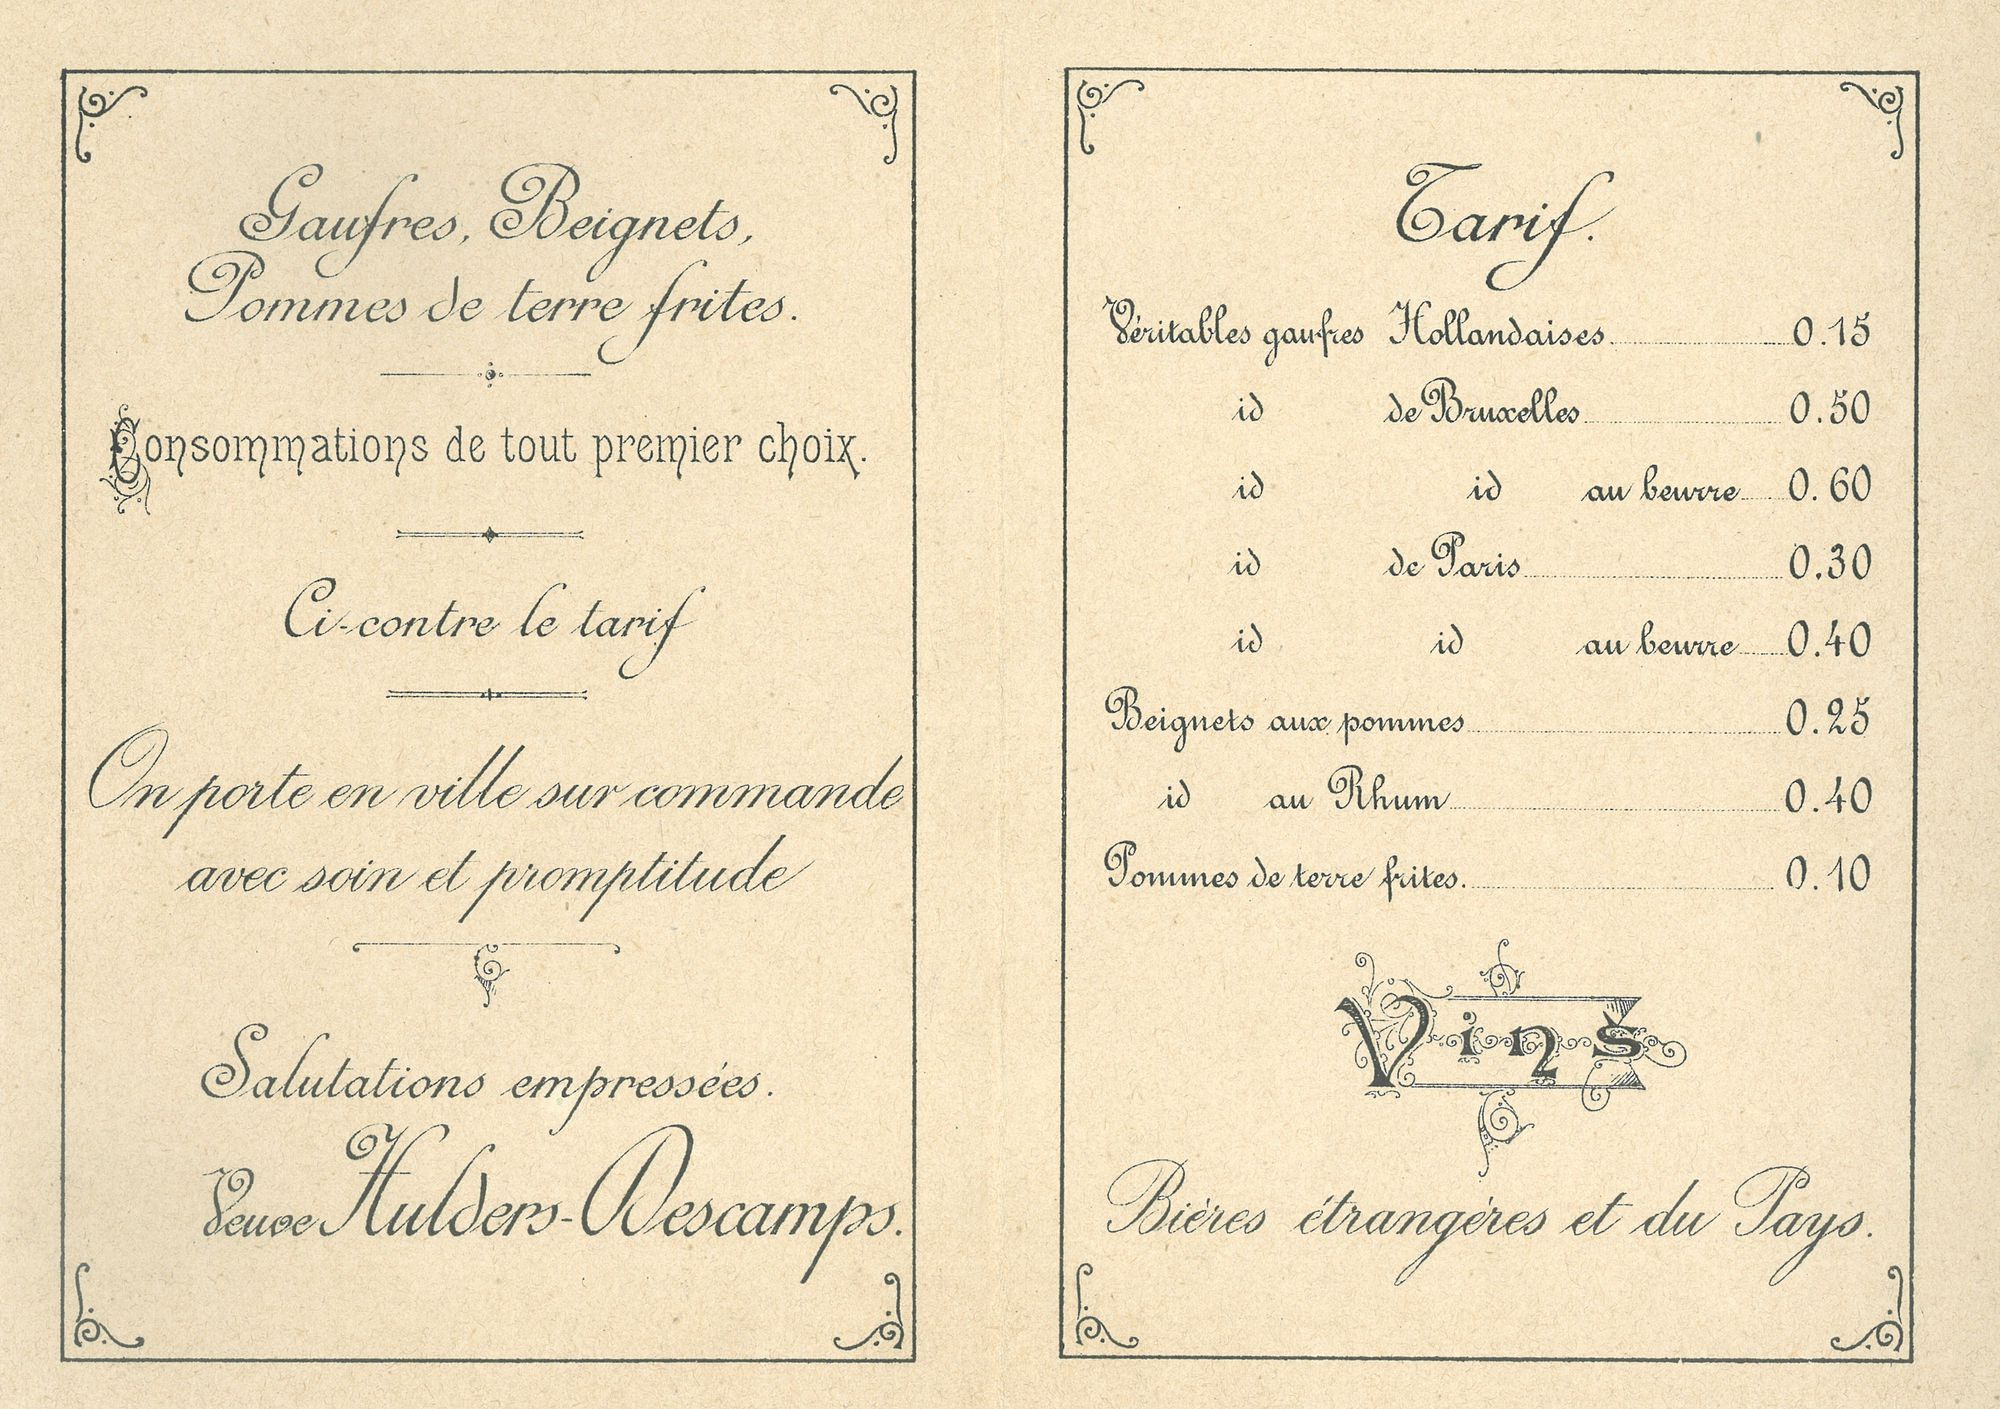 Gaufres, Beignets,
Pommes de terre frites.
Consommations de tout premier choix.
Ci-contre le tarif
On porte en ville sur commande
avec soin et promptitude
Salutations empressées.
Veuve Hulders-Descamps.
Tarif.
Véritables gaufres Hollandaises 0.15
id de Bruxelles 0.50
id id au beurre 0.60
id de Paris 0.30
id id au beurre 0.40
Beignets aux pommes 0.25
id au Rhum 0.40
Pommes de terre frites. 0.10
Vins
Bières étrangères et du Pays.